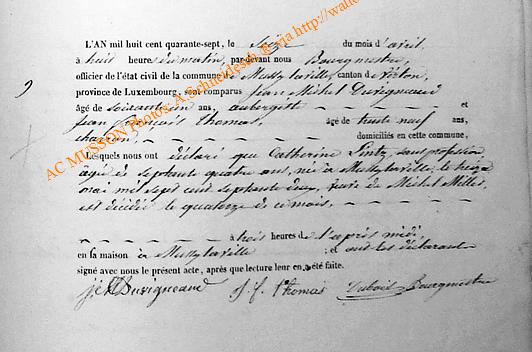 L'AN mil huit cent quarante-sept, le seize du mois d'avril,
à huit heure du matin, par-devant nous Bourgmestre,
officier de l'état civil de la commune de Mussy la ville, canton de Virton,
province de Luxembourg, sont comparus Jean Michel Duvigneaud
âgé de soixante un ans, aubergiste et
Jean François Thomas, âgé de trente neuf ans,
charron, domiciliés en cette commune,
Lesquels nous ont déclaré que Catherine Lintz, sans profession
âgée de septante quatre ans, née à Mussy la ville, le treize
mai mil sept cent septante deux, veuve de Michel Milles,
est décédée le quatorze de ce mois,
à trois heures de l'après midi,
en sa maison à Mussy la ville ; et ont les déclarant
signé avec nous le présent acte, après que lecture leur en a été faite.
j: M Duvigneaud J. f. Thomas Dubois Bourgmestre
AC MUSSON Photos: A Schneidesch @ via http://www